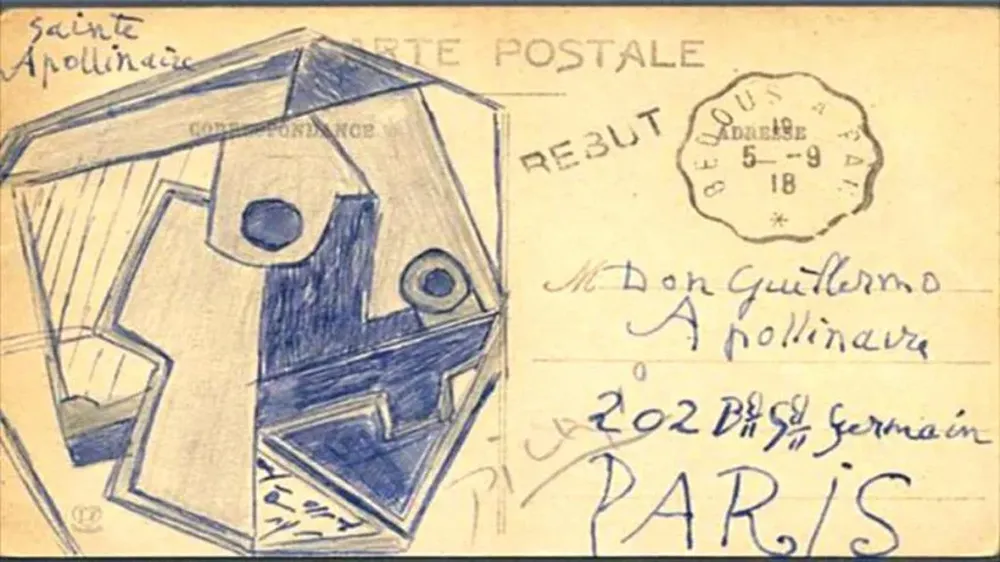 Sainte
Apollinaire
CARTE POSTALE
CORRESPONDANCE
REBUT
BEDOUS A PARIS
19
ADRESSE
5 -9
18
M Don Guillermo
Apollinaire
202 Bd St Germain
PARIS